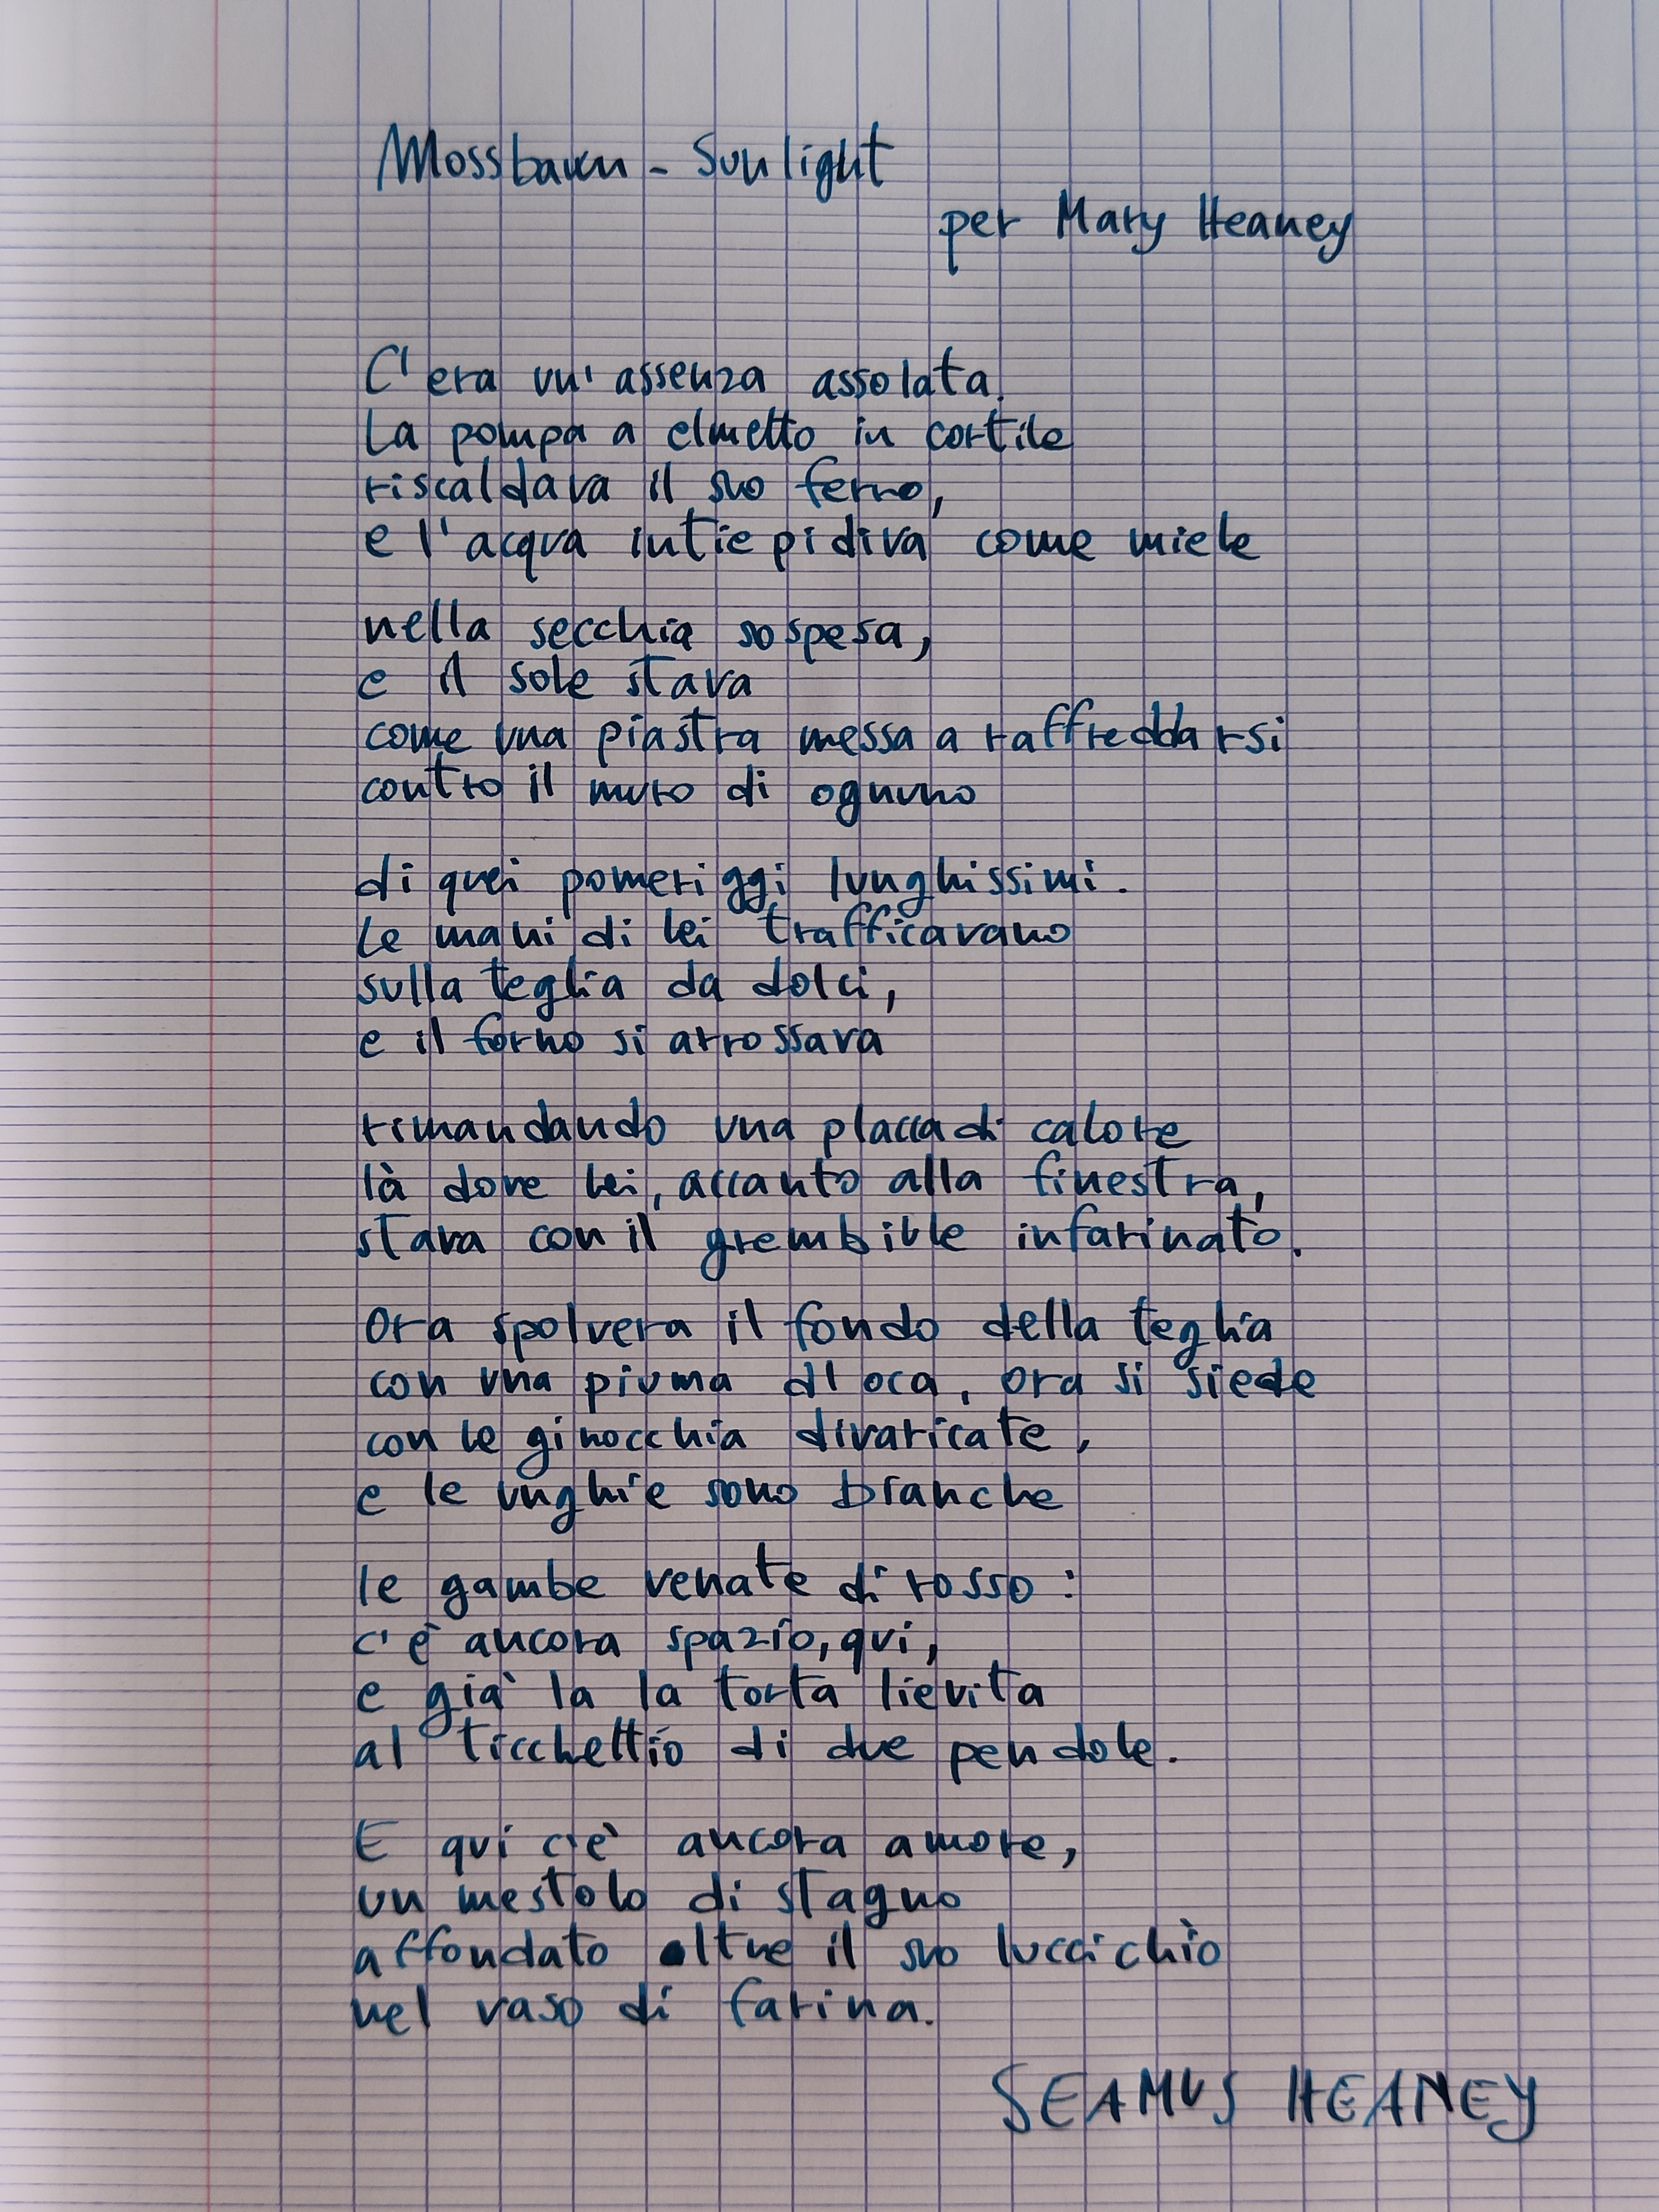 Mossbawn - Sunlight
per Mary Heaney
C'era un'assenza assolata.
La pompa a elmetto in cortile
riscaldava il suo ferro,
e l'acqua intiepidiva come miele
nella secchia sospesa,
e il sole stava
come una piastra messa a raffreddarsi
contro il muro di ognuno
di quei pomeriggi lunghissimi.
Le mani di lei trafficavano
sulla teglia da dolci,
e il forno si arrossava
rimandando una placca di calore
là dove lei, accanto alla finestra,
stava con il grembiule infarinato.
Ora spolvera il fondo della teglia
con una piuma di oca, ora si siede
con le ginocchia divaricate,
e le unghie sono bianche
le gambe venate di rosso:
c'è ancora spazio, qui,
e già la la torta lievita
al ticchettio di due pendole.
E qui c'è ancora amore,
un mestolo di stagno
affondato oltre il suo luccichìo
nel vaso di farina.
SEAMUS HEANEY